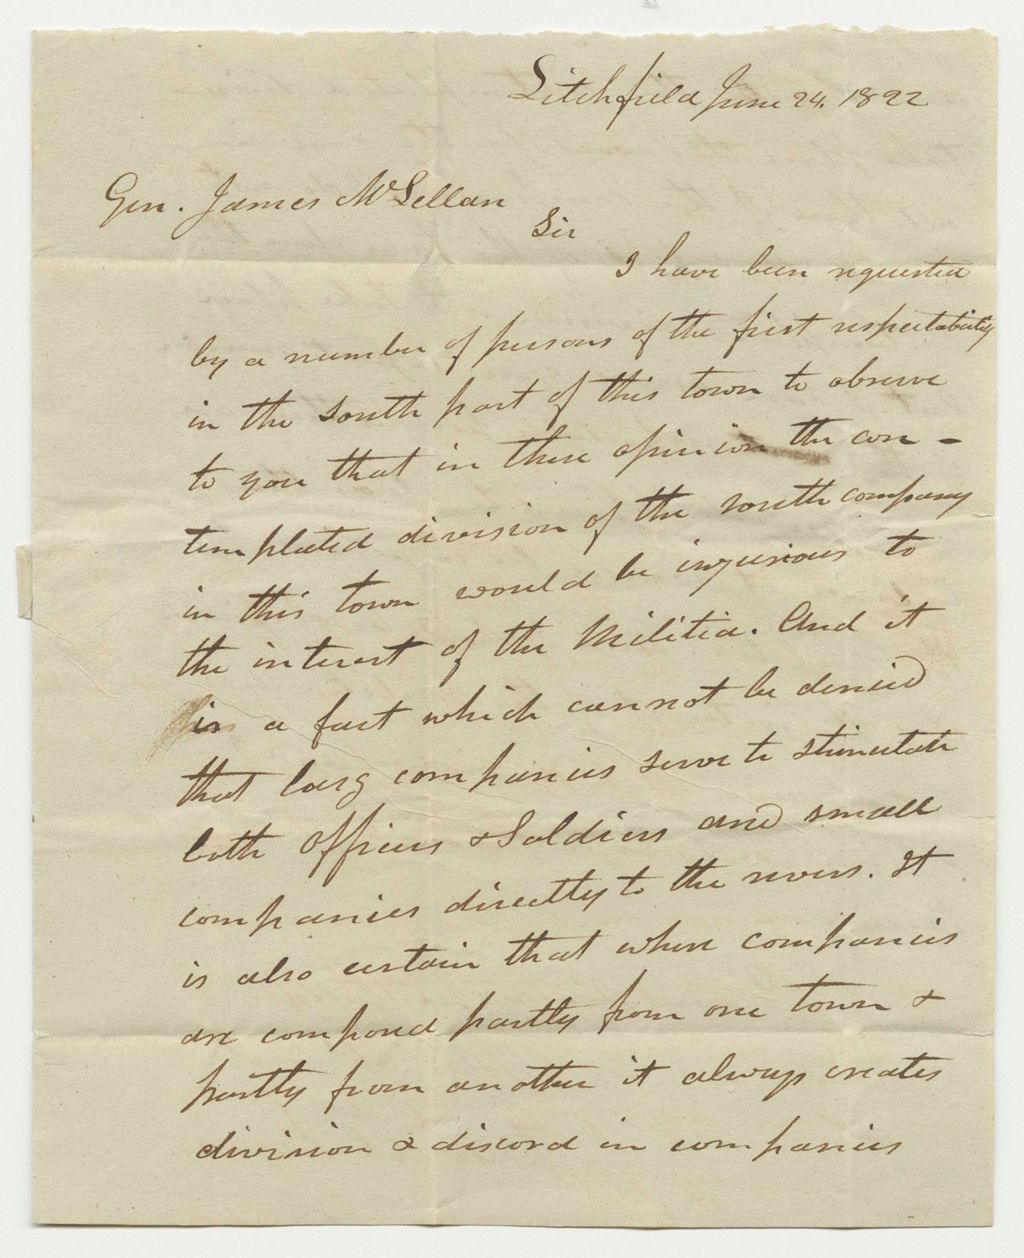 Litchfield June 24. 1822
Gen. James McLellan
Sir
I have been requested
by a number of persons of the first respectability
in the south part of this town to observe
to you that in there opinion the con-
templated division of the south company
in this town would be injurious to
the interest of the Militia. And it
is a fact which cannot be denied
that larg companies serve to stimulate
both Officers & Soldiers and small
companies directly to the revers. It
is also certain that where companies
are composed partly from one town &
partly from another it always creates
division & discord in companies